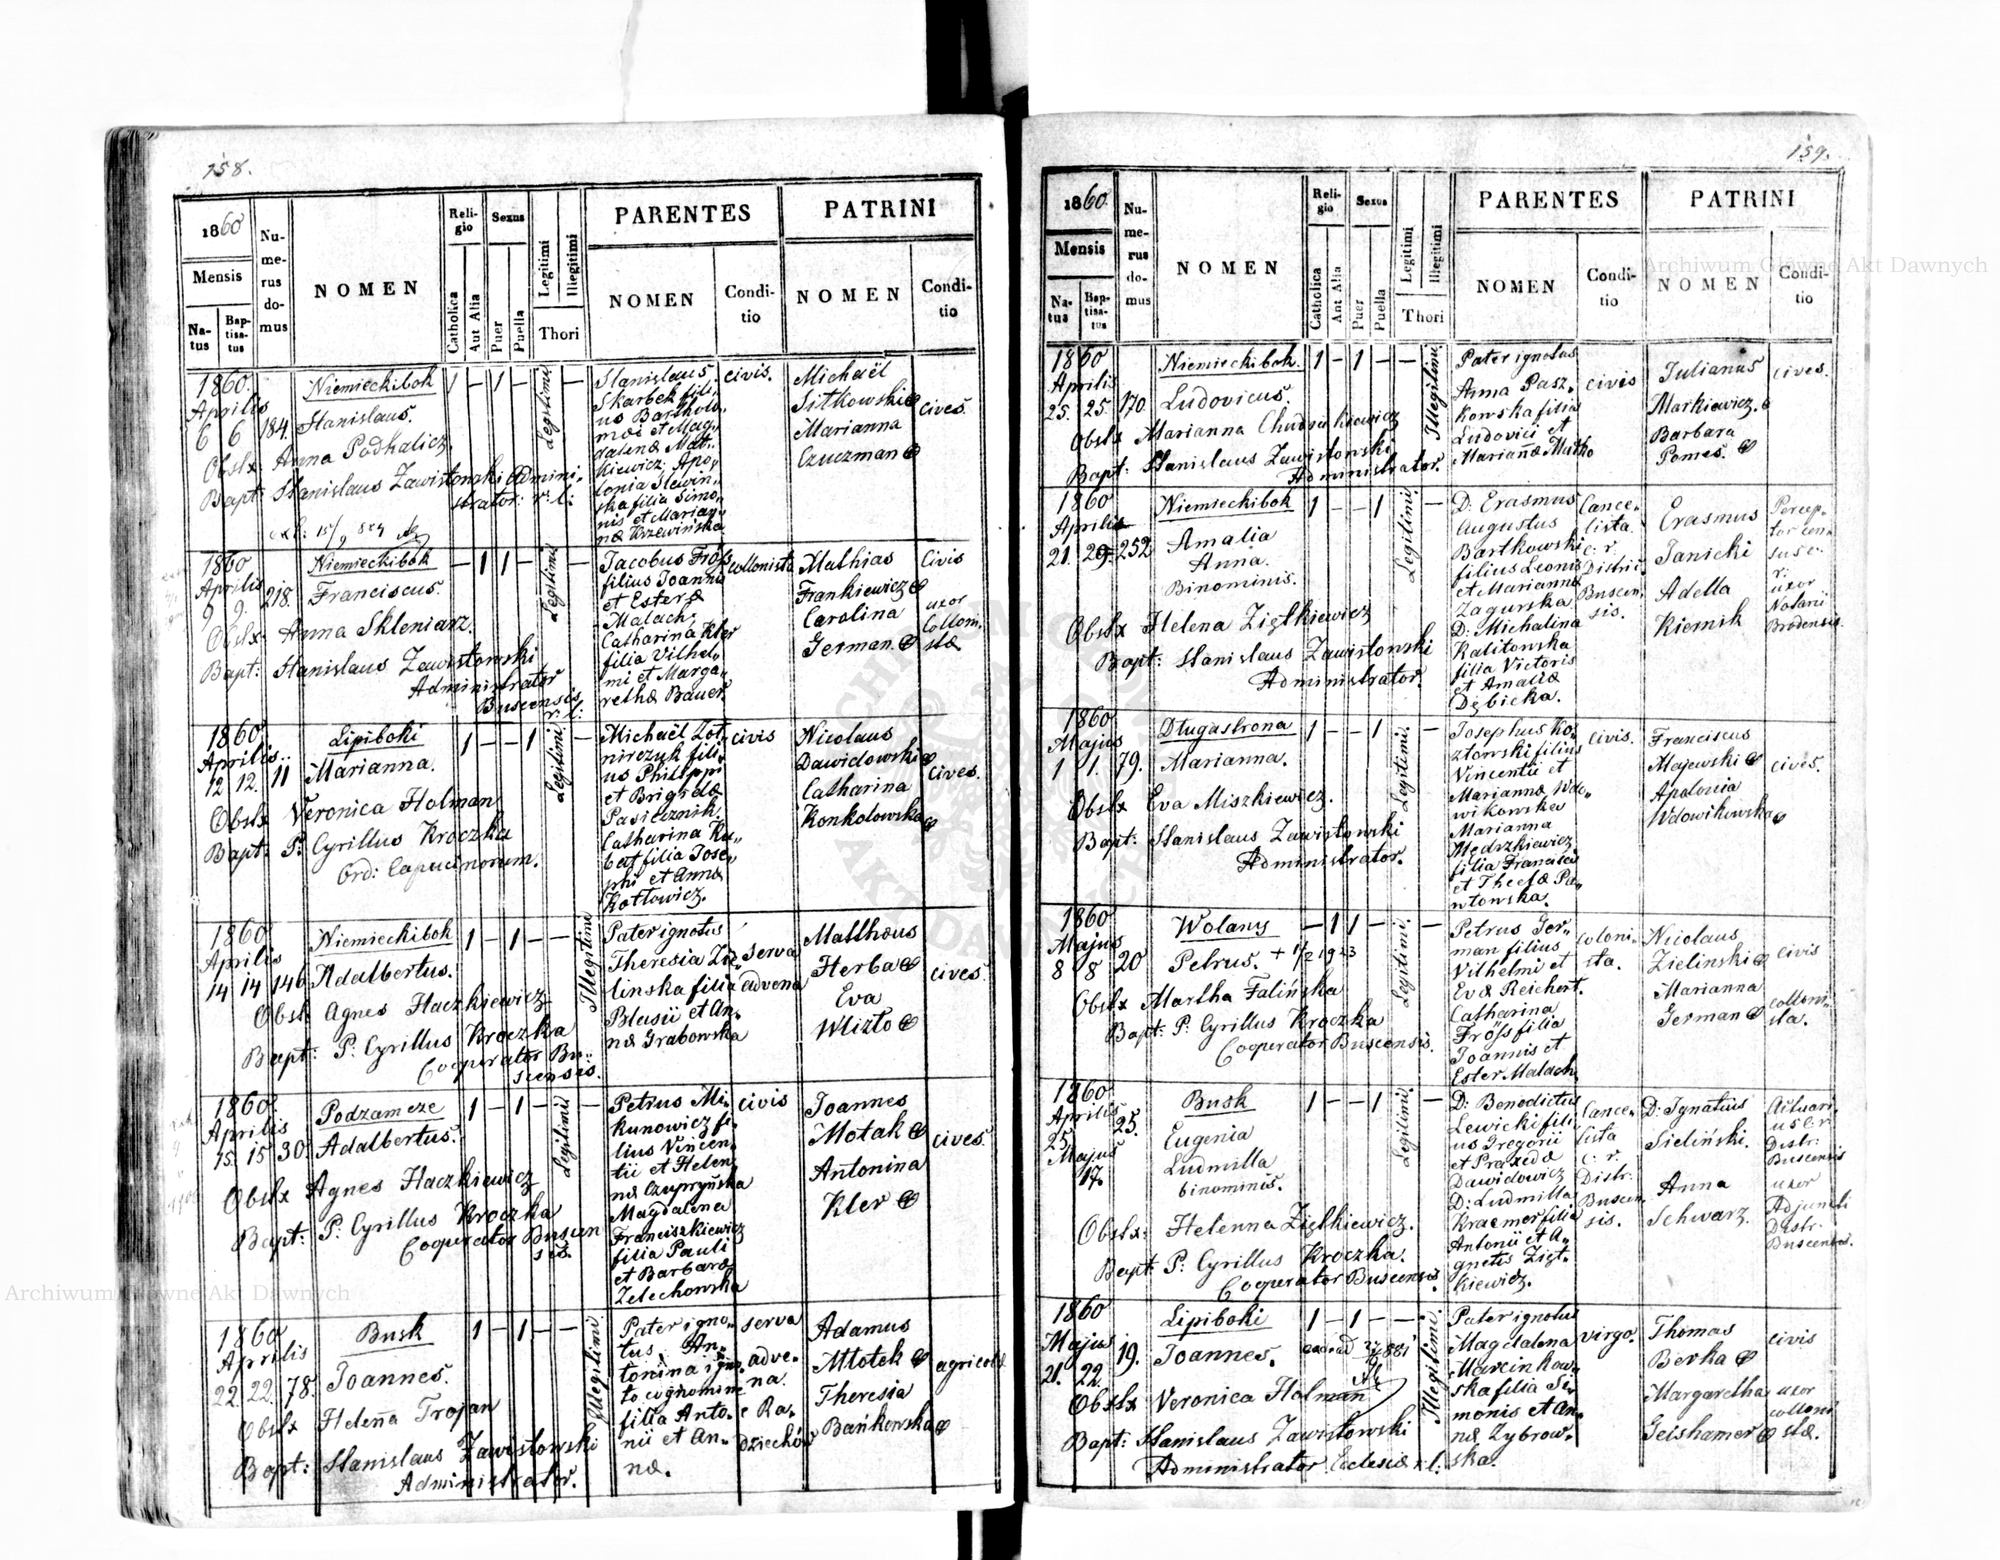 158.
1860
Mensis
Natus
Baptisatus
Numerus domus
NOMEN
Religio
Catholica
Aut Alia
Sexus
Puer
Puella
Legitimi
Illegitimi
Thori
PARENTES
NOMEN
Conditio
PATRINI
NOMEN
Conditio
1860.
Aprilis
6 6 184.
Niemieckibok
Stanislaus.
Obstx Anna Podhalicz
Bapt: Stanislaus Zawistowski Admini-
strator: r: l:
1 – 1 – Legitimi –
Stanislaus
Skarbek fili-
us Bartholo-
mæi et Mag-
dalenæ Mat-
kiewicz. Apo-
lonia Slewin-
ska filia Simo-
nis et Marian-
næ Krzewińska
civis.
Michaël
Sitkowski
Marianna
Czuczman
cives.
1860
Aprilis
9 9. 218.
Niemieckibok
Franciscus.
Obstx Anna Skleniarz.
Bapt: Stanislaus Zawistowski
Administrator
Buscensis
r: l:
– 1 1 – Legitimi –
Jacobus Fröss
filius Joannis
et Esteræ
Malach,
Catharina Kler
filia Vilhel-
mi et Marga-
rethæ Bauer.
collonista
Mathias
Frankiewicz
Carolina
German
Civis
uxor
Collom-
stæ
1860
Aprilis
12 12. 11
Lipiboki
Marianna.
Obstx Veronica Holman
Bapt: P: Cyrillus Kroczka
Ord: Capucinorum.
1 – – 1 Legitimi –
Michaël Zot-
nirczyk fili-
us Philippi
et Brigidæ
Pasicznik,
Catharina Ku-
bat filia Jose-
phi et Annæ
Kottowicz.
civis
Nicolaus
Dawidowski
Catharina
Konkolowska
cives.
1860
Aprilis
14 14 146
Niemieckibok
Adalbertus.
Obstx Agnes Haczkiewicz
Bapt: P: Cyrillus Kroczka
Cooperator Bu-
scensis.
1 – 1 – – Illegitimi
Pater ignotus
Theresia Zie-
linska filia
Blasii et An-
næ Grabowska
serva
advena
Matthæus
Herba
Eva
Wlizto
cives.
1860
Aprilis
15 15 30.
Podzamcze
Adalbertus.
Obstx Agnes Haczkiewicz
Bapt: P: Cyrillus Kroczka
Cooperator Buscen
sis.
1 – 1 – Legitimi –
Petrus Mi-
kunowicz fi-
lius Vincen-
tii et Helen-
næ Czupryńska
Magdalena
Franciszkiewicz
filia Pauli
et Barbaræ
Zelechowska
civis
Joannes
Motak
Antonina
Kler
cives.
1860
Aprilis
22. 22. 78.
Busk
Joannes.
Obstx Helena Trojan
Bapt: Stanislaus Zawistowski
Administrator.
1 – 1 – – Illegitimi
Pater igno-
tus, An-
tonina igno-
to cognomine
filia Anto-
nii et An-
næ.
serva
adve-
na.
e Ra-
dziechów
Adamus
Mlotek
Theresia
Bańkowska
agricolæ
159.
1860
Mensis
Natus
Baptisatus
Numerus domus
NOMEN
Religio
Catholica
Aut Alia
Sexus
Puer
Puella
Legitimi
Illegitimi
Thori
PARENTES
NOMEN
Conditio
PATRINI
NOMEN
Conditio
1860
Aprilis
25. 25. 170.
Niemieckibok.
Ludovicus.
Obstx Marianna Chudzikiewicz
Bapt: Stanislaus Zawistowski
Administrator.
1 – 1 – – Illegitimi
Pater ignotus
Anna Pasz-
kowska filia
Ludovici et
Mariañæ Mutko
civis
Julianus
Markiewicz.
Barbara
Pomes.
cives.
1860
Aprilis
21. 29. 252
Niemieckibok
Amalia
Anna.
Binominis.
Obstx Helena Ziętkiewicz
Bapt: Stanislaus Zawistowski
Administrator.
1 – – 1 Legitimi –
D. Erasmus
Augustus
Bartkowski
filius Leonis
et Mariannæ
Zagurska
D: Michalina
Kalitowska
filia Victoris
et Amaliæ
Dębicka.
Cance-
lista.
c: r:
Distric-
Buscen-
sis.
Erasmus
Janicki
Adella
Kiernik
Percep-
tor con-
sus c.
r.
uxor
Notarii
Brodensis.
1860
Majus
1 1. 79.
Długastrona
Marianna.
Obstx Eva Miszkiewicz.
Bapt: Stanislaus Zawistowski
Administrator.
1 – – 1 Legitimi. –
Josephus Ko-
złowski filius
Vincentii et
Mariannæ Wdo-
wikowska
Marianna
Mędrzkiewicz
filia Francisci
et Theclæ Pa-
włowska.
civis.
Franciscus
Majewski
Apolonia
Wdowikowska
cives.
1860
Majus
8 8 20
Wolany
Petrus. + 1/2 1923
Obstx Martha Falińska
Bapt: P: Cyrillus Kroczka
Cooperator Buscensis.
– 1 1 – Legitimi. –
Petrus Ger-
man filius
Vilhelmi et
Evæ Reichert.
Catharina
Fröss filia
Joannis et
Ester Malach.
coloni-
sta.
Nicolaus
Zielinski
Marianna
German
civis
colloni-
sta.
1860
Aprilis
25.
Majus
17.
25.
Busk
Eugenia
Ludmilla
binominis.
Obstx: Helenna Ziętkiewicz.
Bapt: P: Cyrillus Kroczka.
Cooperator Buscensis.
1 – – 1 Legitimi. –
D: Benedictus
Lewicki fili-
us Gregorii
et Praxedæ
Dawidowicz
D: Ludmilla
Kraemer filia
Antonii et A-
gnetis Zięt-
kiewicz.
Cance-
lista
c: r.
Distr:
Buscen-
sis.
D: Ignatius
Sieliński.
Anna
Schwarz.
Actuari-
us c. r.
Distr:
Buscensis
uxor
Adjuncti
Distr:
Buscensis.
1860
Majus
21. 22. 19.
Lipiboki
Joannes.
Obstx Veronica Holman
Bapt: Stanislaus Zawistowski
Administrator Ecclesiæ r. l:
1 – 1 – – Illegitimi
Pater ignotus
Magdalena
Marcinkow-
ska filia Si-
monis et An-
næ Zybrow-
ska.
virgo.
Thomas
Berka
Margaretha
Geishamer
civis
uxor
colloni
stæ.
Archiwum Główne Akt Dawnych
Archiwum Główne Akt Dawnych